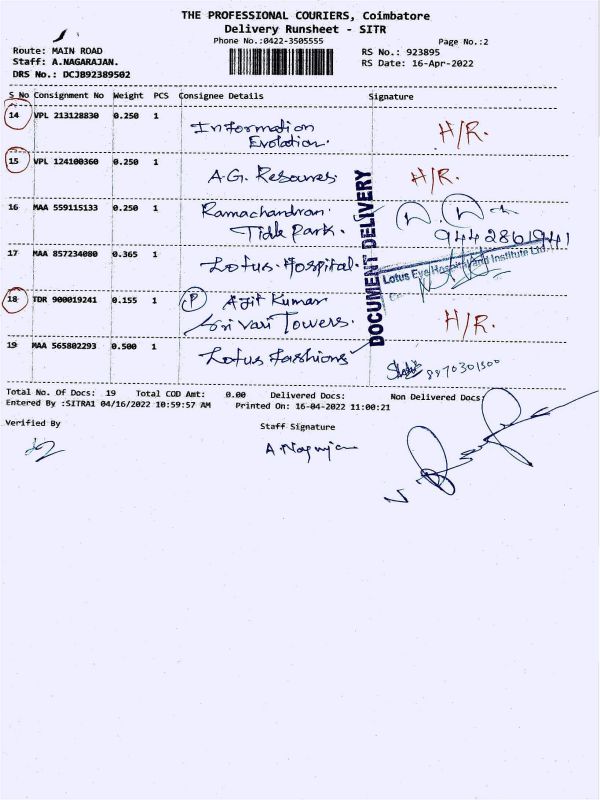 THE PROFESSIONAL COURIERS, Coimbatore
Delivery Runsheet - SITR
Phone No.:0422-3505555
Page No.:2
Route: MAIN ROAD
RS No.: 923895
Staff: A.NAGARAJAN.
RS Date: 16-Apr-2022
DRS No.: DCJB92389502
S No Consignment No Weight PCS Consignee Details Signature
14 VPL 213128830 0.250 1
Information H/R.
Evolation.
15 VPL 124100360 0.250 1
A.G. Resources H/R.
16 MAA 559115133 0.250 1 Ramachandran
Tidle Park. 9442861941
17 MAA 857234080 0.365 1
Lotus Hospital. Lotus Eye Hospital and Institute Ltd.
DOCUMENT DELIVERY
18 TDR 900019241 0.155 1 P Ajit Kumar
Sri Vari Towers. H/R.
19 MAA 565802293 0.500 1
Lotus Fashions 8870301500
Total No. Of Docs: 19 Total COD Amt: 0.00 Delivered Docs: Non Delivered Docs:
Entered By :SITRA1 04/16/2022 10:59:57 AM Printed On: 16-04-2022 11:00:21
Verified By Staff Signature
A.Nagaraja